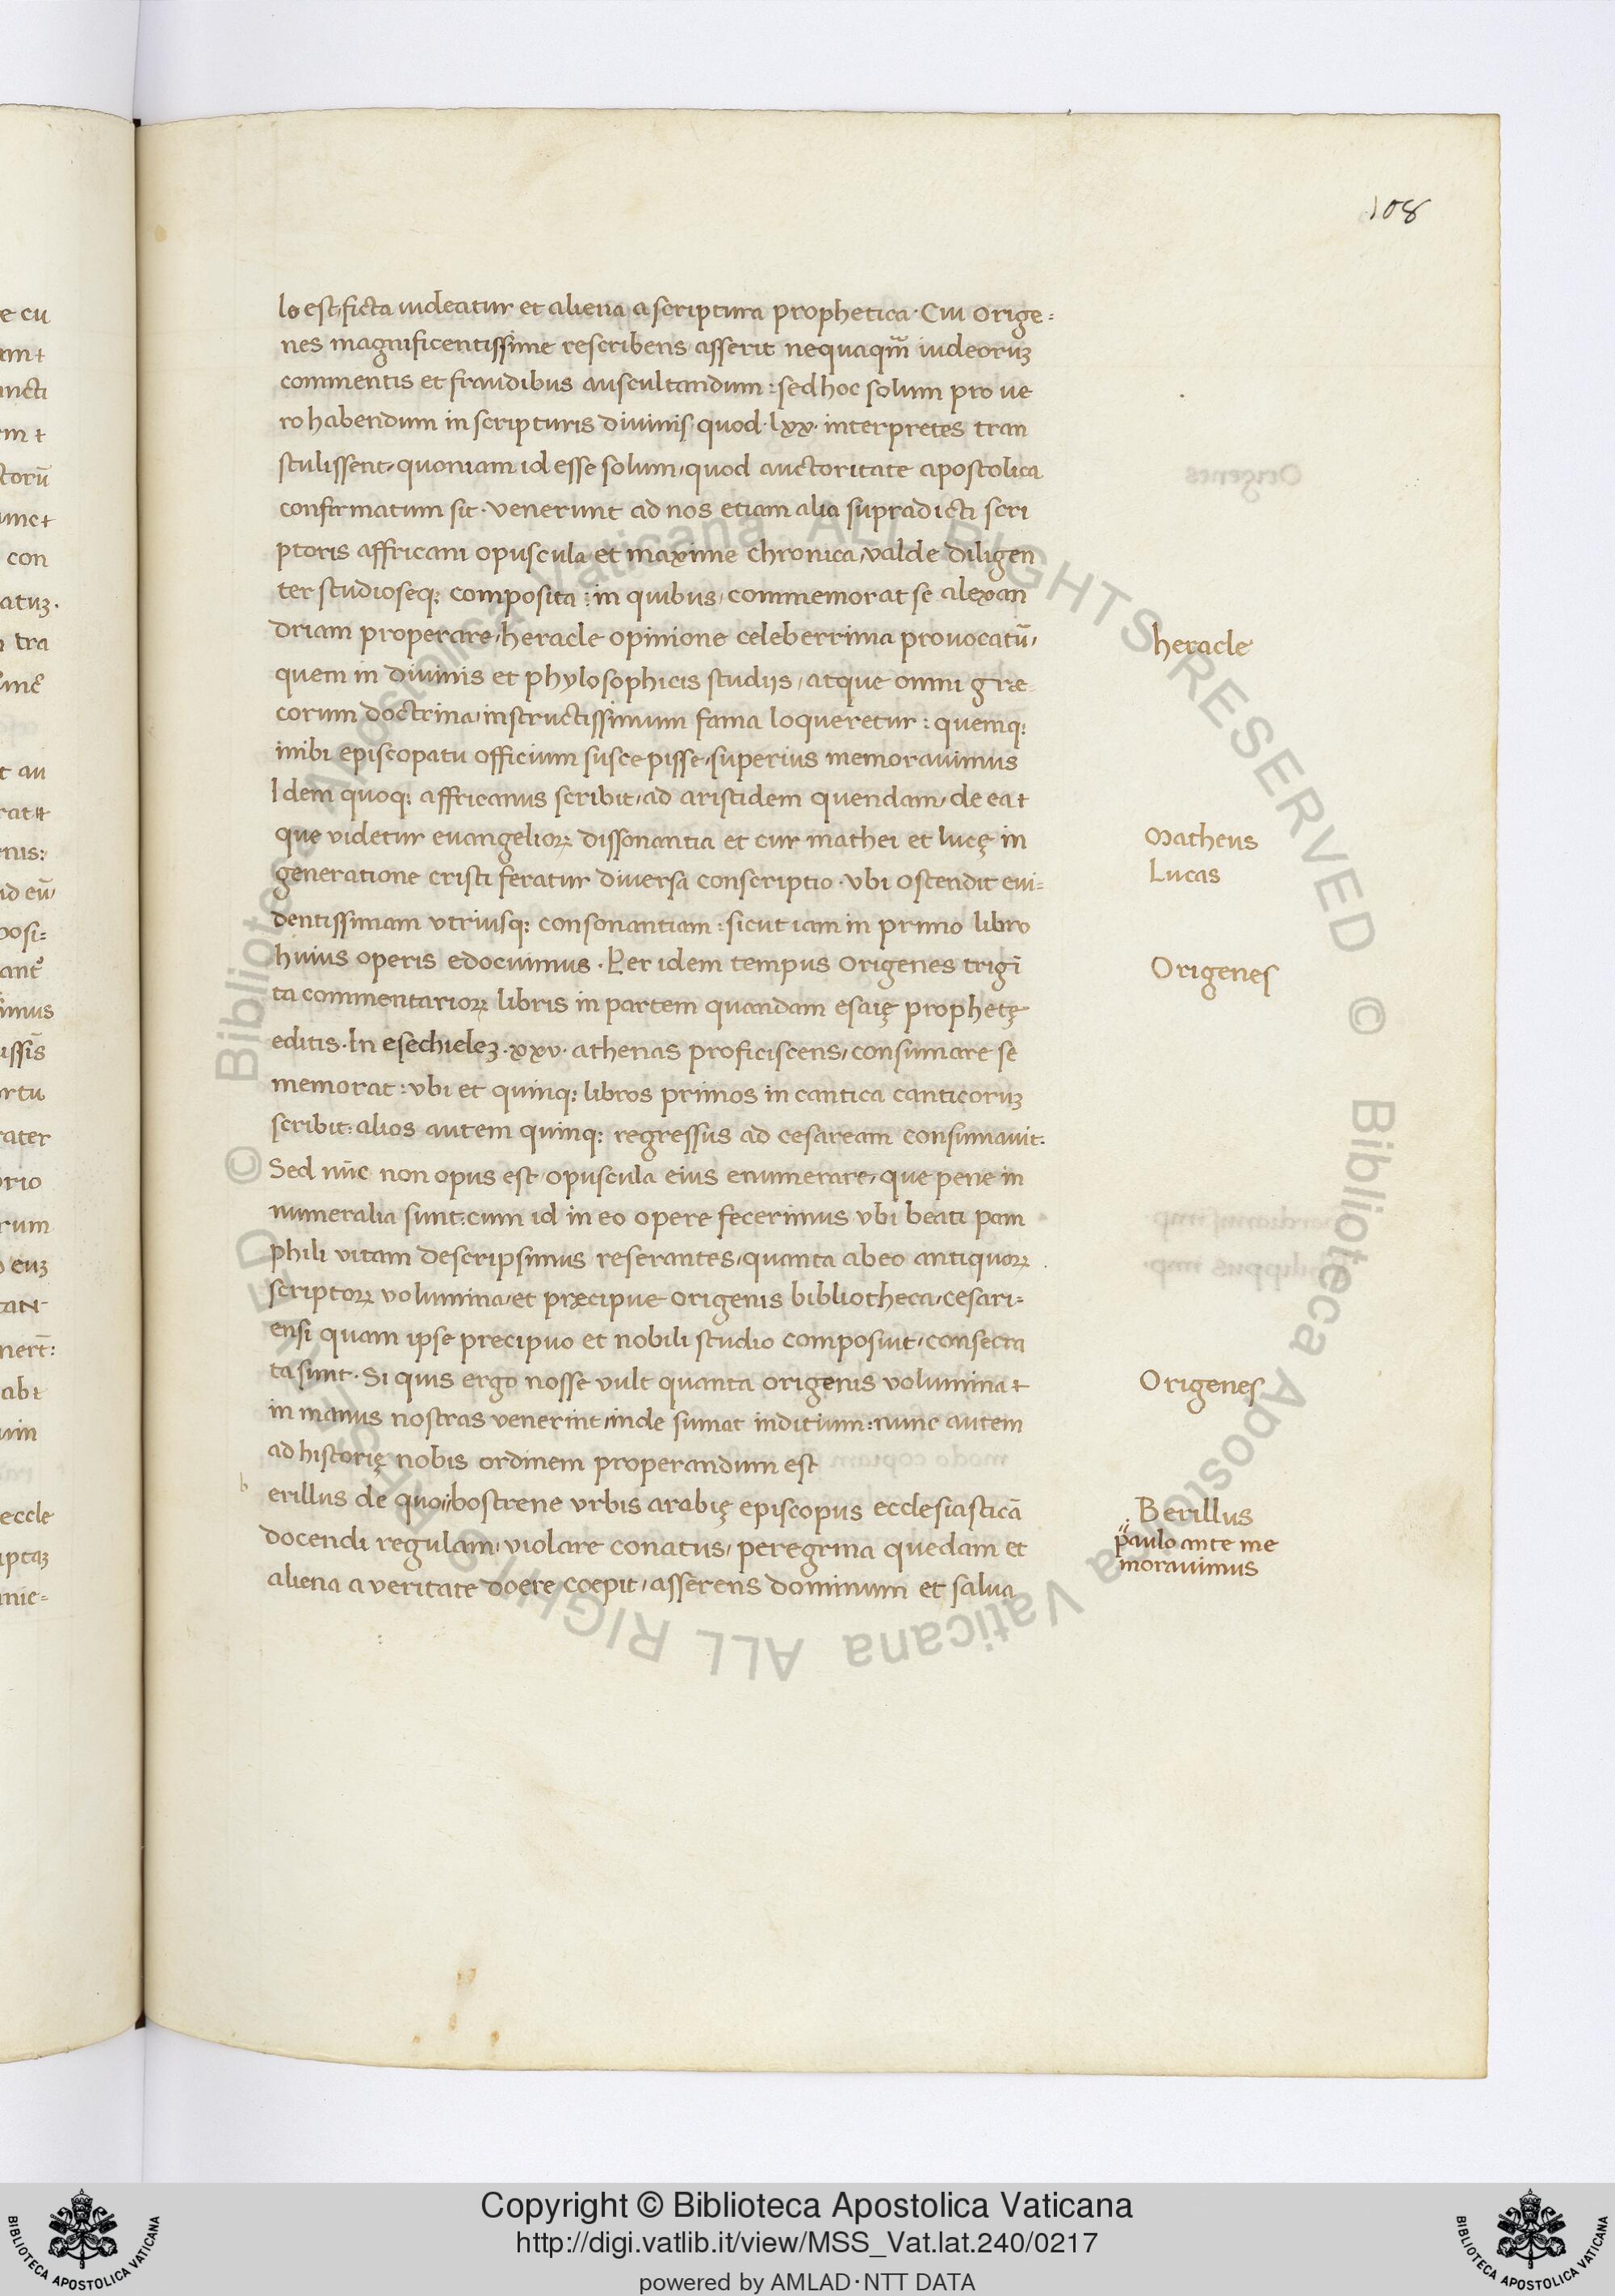 108
lo est, ficta uideatur et aliena a scriptura prophetica · Cui Orige=
nes magnificentissime rescribens asserit nequaqm̄ iudeoruꝫ
commentis et fraudibus auscultandum : sed hoc solum pro ue
ro habendum in scripturis diuinis quod · lxx · interpretes tran
stulissent, quoniam id esse solum, quod auctoritate apostolica
confirmatum sit · venerunt ad nos etiam alia supradicti scri
ptoris affricani opuscula et maxime chronica, valde diligen
ter studioseq; composita : in quibus, commemorat se alexan
driam properare, heracle opinione celeberrima prouocatū,
quem in diuinis et phylosophicis studijs, atque omni græ
corum doctrina, instructissimum fama loqueretur : quemq;
inibi episcopatu officium suscepisse, superius memorauimus
Idem quoq; affricanus scribit, ad aristidem quendam, de ea
que videtur euangelioꝝ dissonantia et cur mathei et lucę in
generatione cristi feratur diuersa conscriptio · vbi ostendit eui=
dentissimam vtriusq; consonantiam : sicut iam in primo libro
huius operis edocuimus · Per idem tempus Origenes trigī
ta commentarioꝝ libris in partem quandam esaię prophetę
editis · In esechieleꝫ · xxv · athenas proficiscens, consumare se
memorat : vbi et quinq; libros primos in cantica canticoruꝫ
scribit : alios autem quinq; regressus ad cesaream consumauit :
Sed nūc non opus est opuscula eius enumerare, que pene in
numeralia sunt : cum id in eo opere fecerimus vbi beati pam
phili vitam descripsimus reserantes, quanta ab eo antiquoꝝ
scriptoꝝ volumina, et præcipue origenis bibliotheca, cesari=
ensi quam ipse precipuo et nobili studio composuit, consecra
ta sunt · Si quis ergo nosse vult quanta origenis volumina
in manus nostras venerint, inde sumat inditium : nunc autem
ad historię nobis ordinem properandum est
b
erillus de quo bostrene vrbis arabię episcopus ecclesiasticā
docendi regulam, violare conatus, peregrina quedam et
aliena a veritate docere coepit, asserens dominum et salua
heracle
Matheus
Lucas
Origenes
Origenes
Berillus
paulo ante me
morauimus
© Biblioteca Apostolica Vaticana ALL RIGHTS RESERVED
© Biblioteca Apostolica Vaticana ALL RIGHTS RESERVED
Copyright © Biblioteca Apostolica Vaticana
http://digi.vatlib.it/view/MSS_Vat.lat.240/0217
powered by AMLAD·NTT DATA
BIBLIOTECA APOSTOLICA VATICANA
BIBLIOTECA APOSTOLICA VATICANA